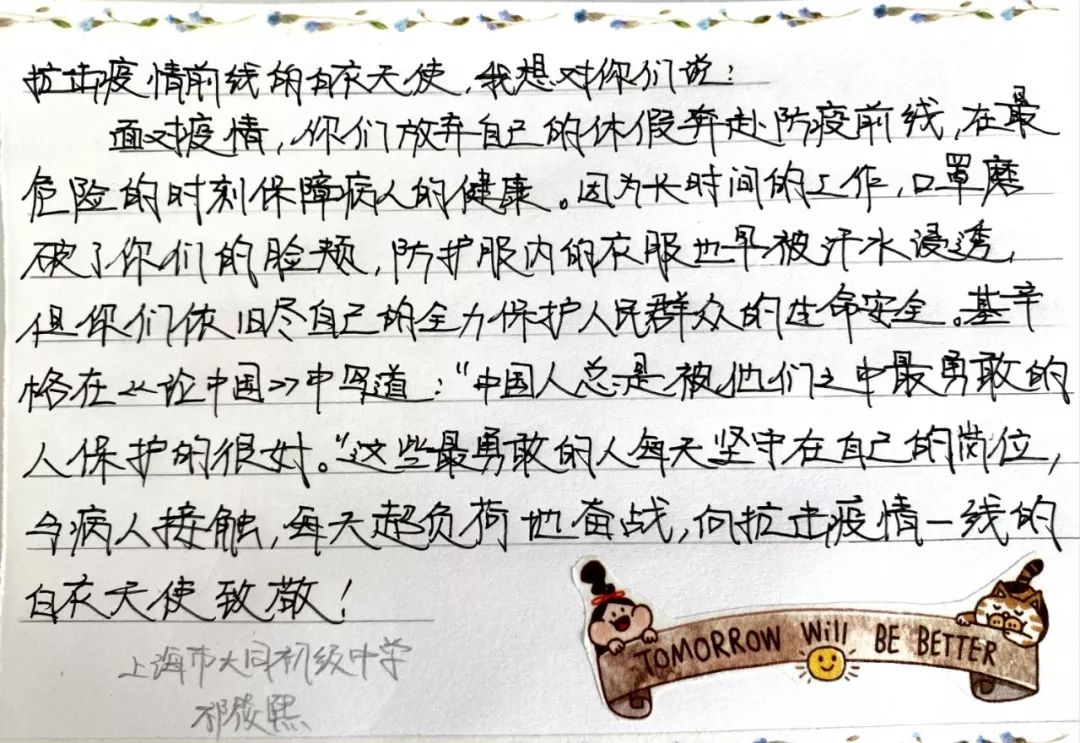 抗击疫情前线的白衣天使，我想对你们说：
面对疫情，你们放弃自己的休假奔赴防疫前线，在最
危险的时刻保障病人的健康。因为长时间的工作，口罩磨
破了你们的脸颊，防护服内的衣服也早被汗水浸透，
但你们依旧尽自己的全力保护人民群众的生命安全。基辛
格在《论中国》中写道："中国人总是被他们之中最勇敢的
人保护的很好。"这些最勇敢的人每天坚守在自己的岗位，
与病人接触，每天超负荷地奋战，向抗击疫情一线的
白衣天使致敬！
TOMORROW Will BE BETTER
上海市大同初级中学
祁筱熙